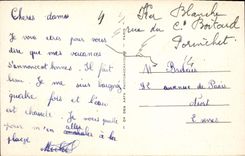 Cheres dames
Je vous écris pour vous
dire que mes vacances
s'annoncent bonnes. Il fait
beau. Je me suis baignée
quatre fois et l'eau
est chaude. Je vous quitte
pour m'en aller
à la
plage
Mer Blanche
rue du Ct Boitard
Pornichet
avenue de Paris
Niort